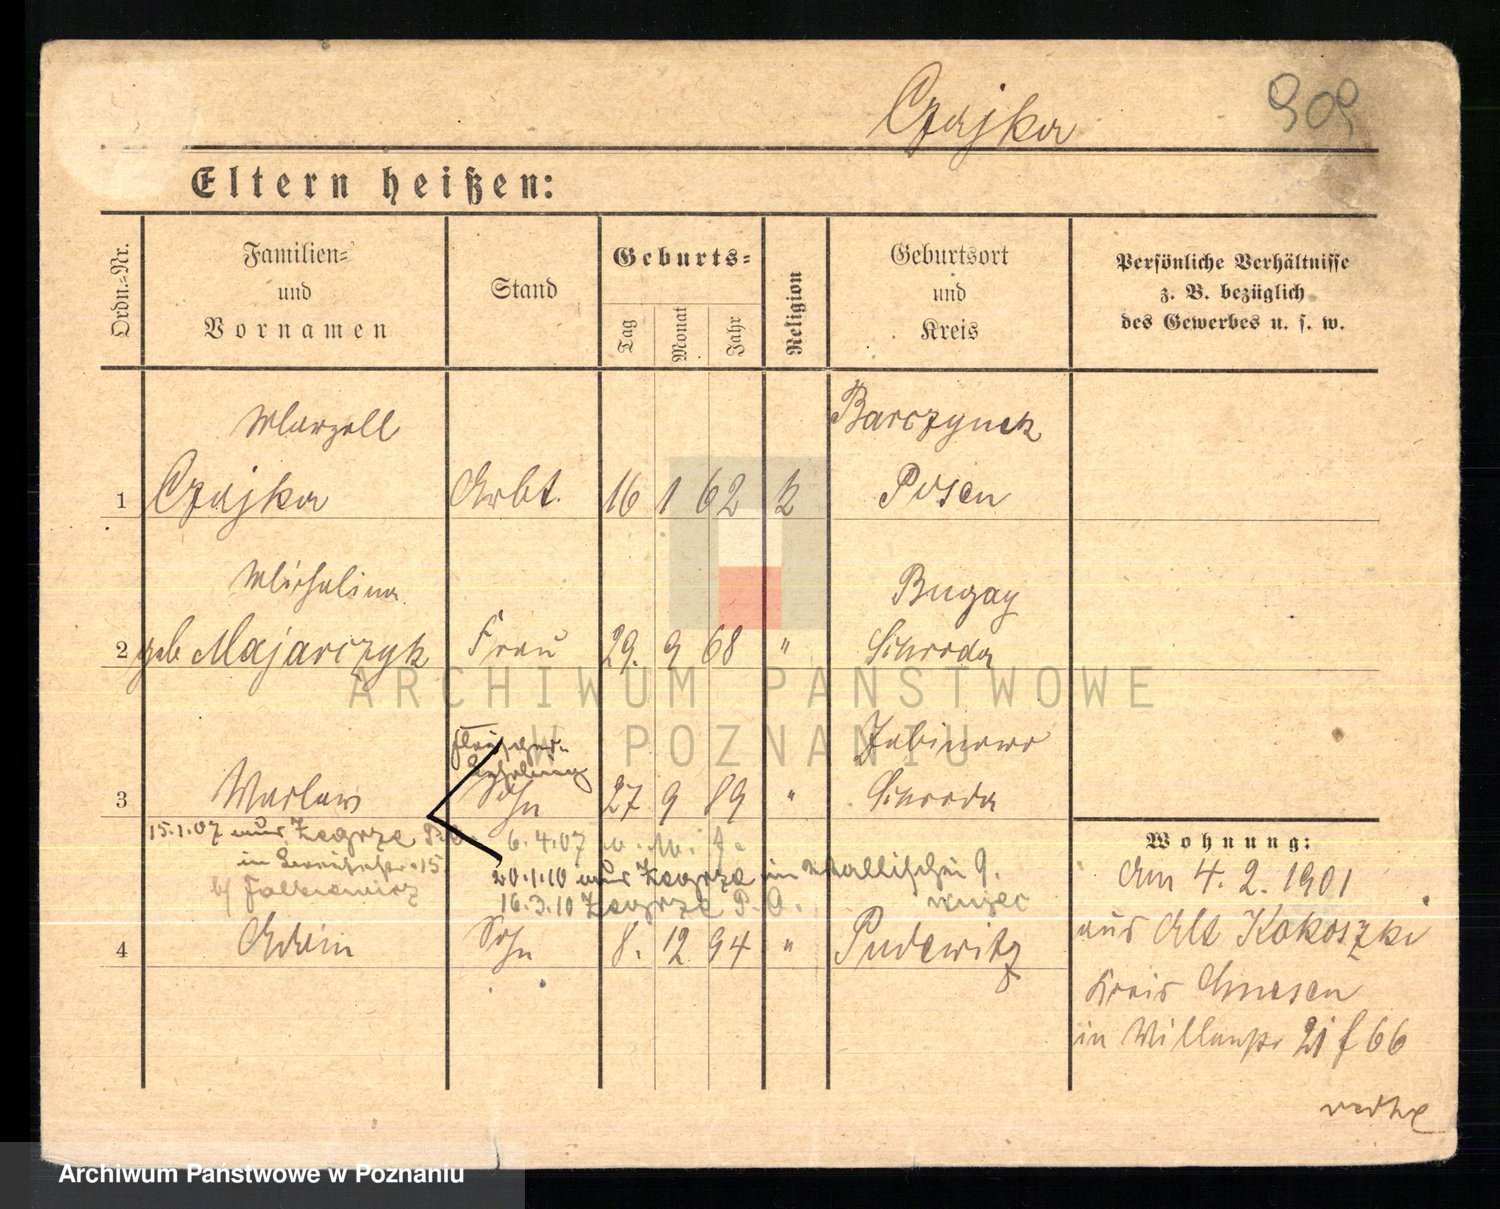 Czajka
909
Eltern heißen:
Ordn.-Nr.
Familien-
und
Vornamen
Stand
Geburts-
Tag
Monat
Jahr
Religion
Geburtsort
und
Kreis
Persönliche Verhältnisse
z. B. bezüglich
des Gewerbes u. s. w.
Marzell
Barczynek
1 Czajka Arbt. 16 1 62 k Posen
Michalina
Bugay
2 geb Majarczyk Frau 29. 9 68 " Schroda
ARCHIWUM PAŃSTWOWE
W POZNANIU
Fleischer-
Lehrling
3 Waclaw Sohn 27 9 89 " Schroda
15.1.07 aus Zegrze
6.4.07
b/ Falkiewicz
20.1.10 aus Zegrze in Wallischei 9.
16.3.10 Zegrze P.O.
4 Edwin Sohn 8. 12 94 " Pudewitz
Wohnung:
Am 4. 2. 1901
aus Alt Kokoszki
Kreis Gnesen
in 21 f 66
Archiwum Państwowe w Poznaniu